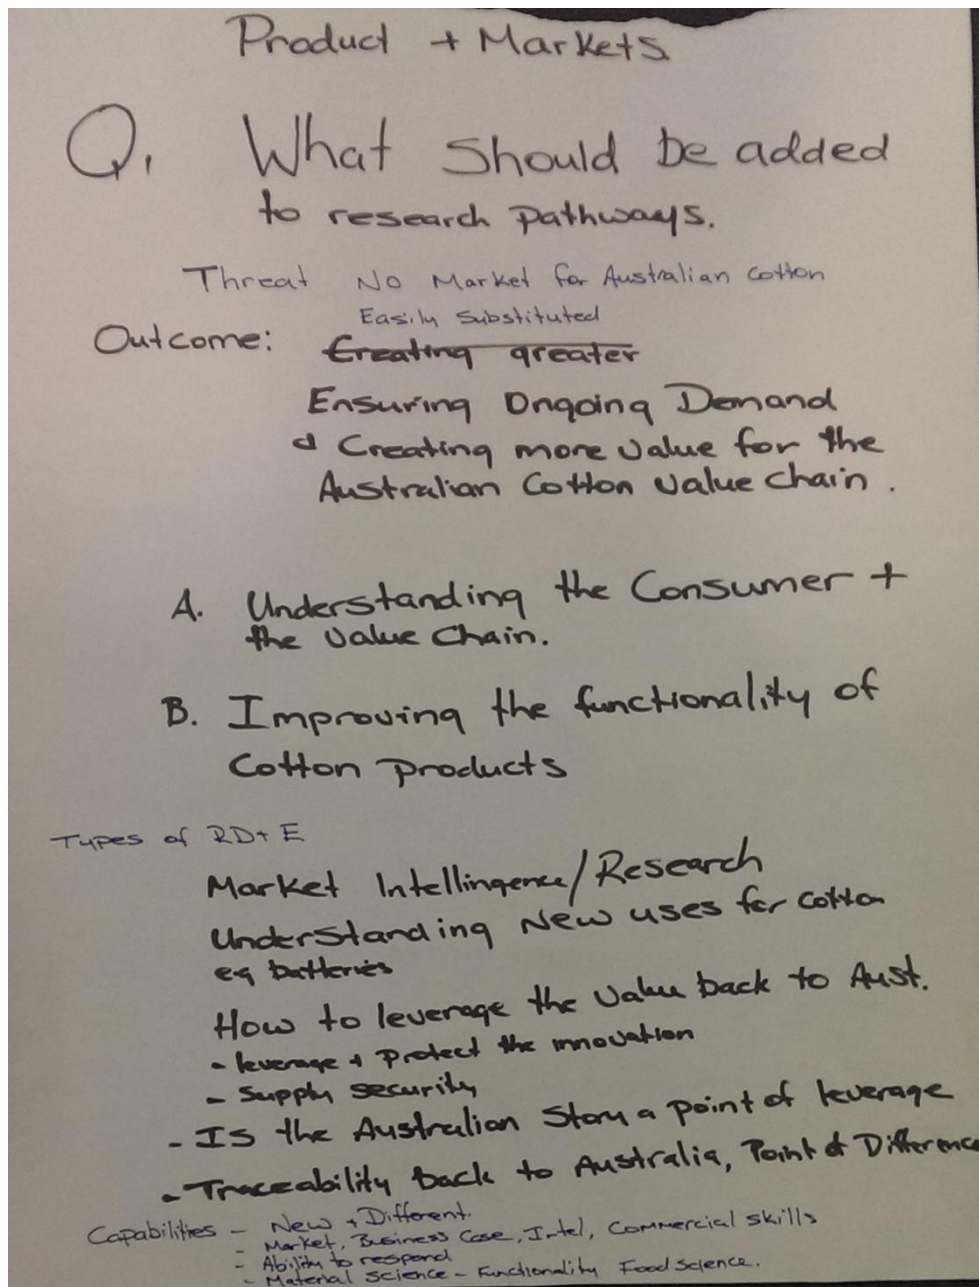 Product + Markets
Q. What Should be added
to research pathways.
Threat No Market for Australian Cotton
Easily Substituted
Outcome: Creating greater
Ensuring Ongoing Demand
& Creating more value for the
Australian Cotton value chain.
A. Understanding the Consumer +
the value chain.
B. Improving the functionality of
Cotton products
Types of RD+E
Market Intellingence/Research
Understanding New uses for cotton
eg batteries
How to leverage the value back to Aust.
- leverage + protect the innovation
- Supply security
- Is the Australian Story a point of leverage
- Traceability back to Australia, Point of Difference
Capabilities - New + Different.
- Market, Business Case, Intel, Commercial skills
- Ability to respond
- Material Science - Functionality Food Science.